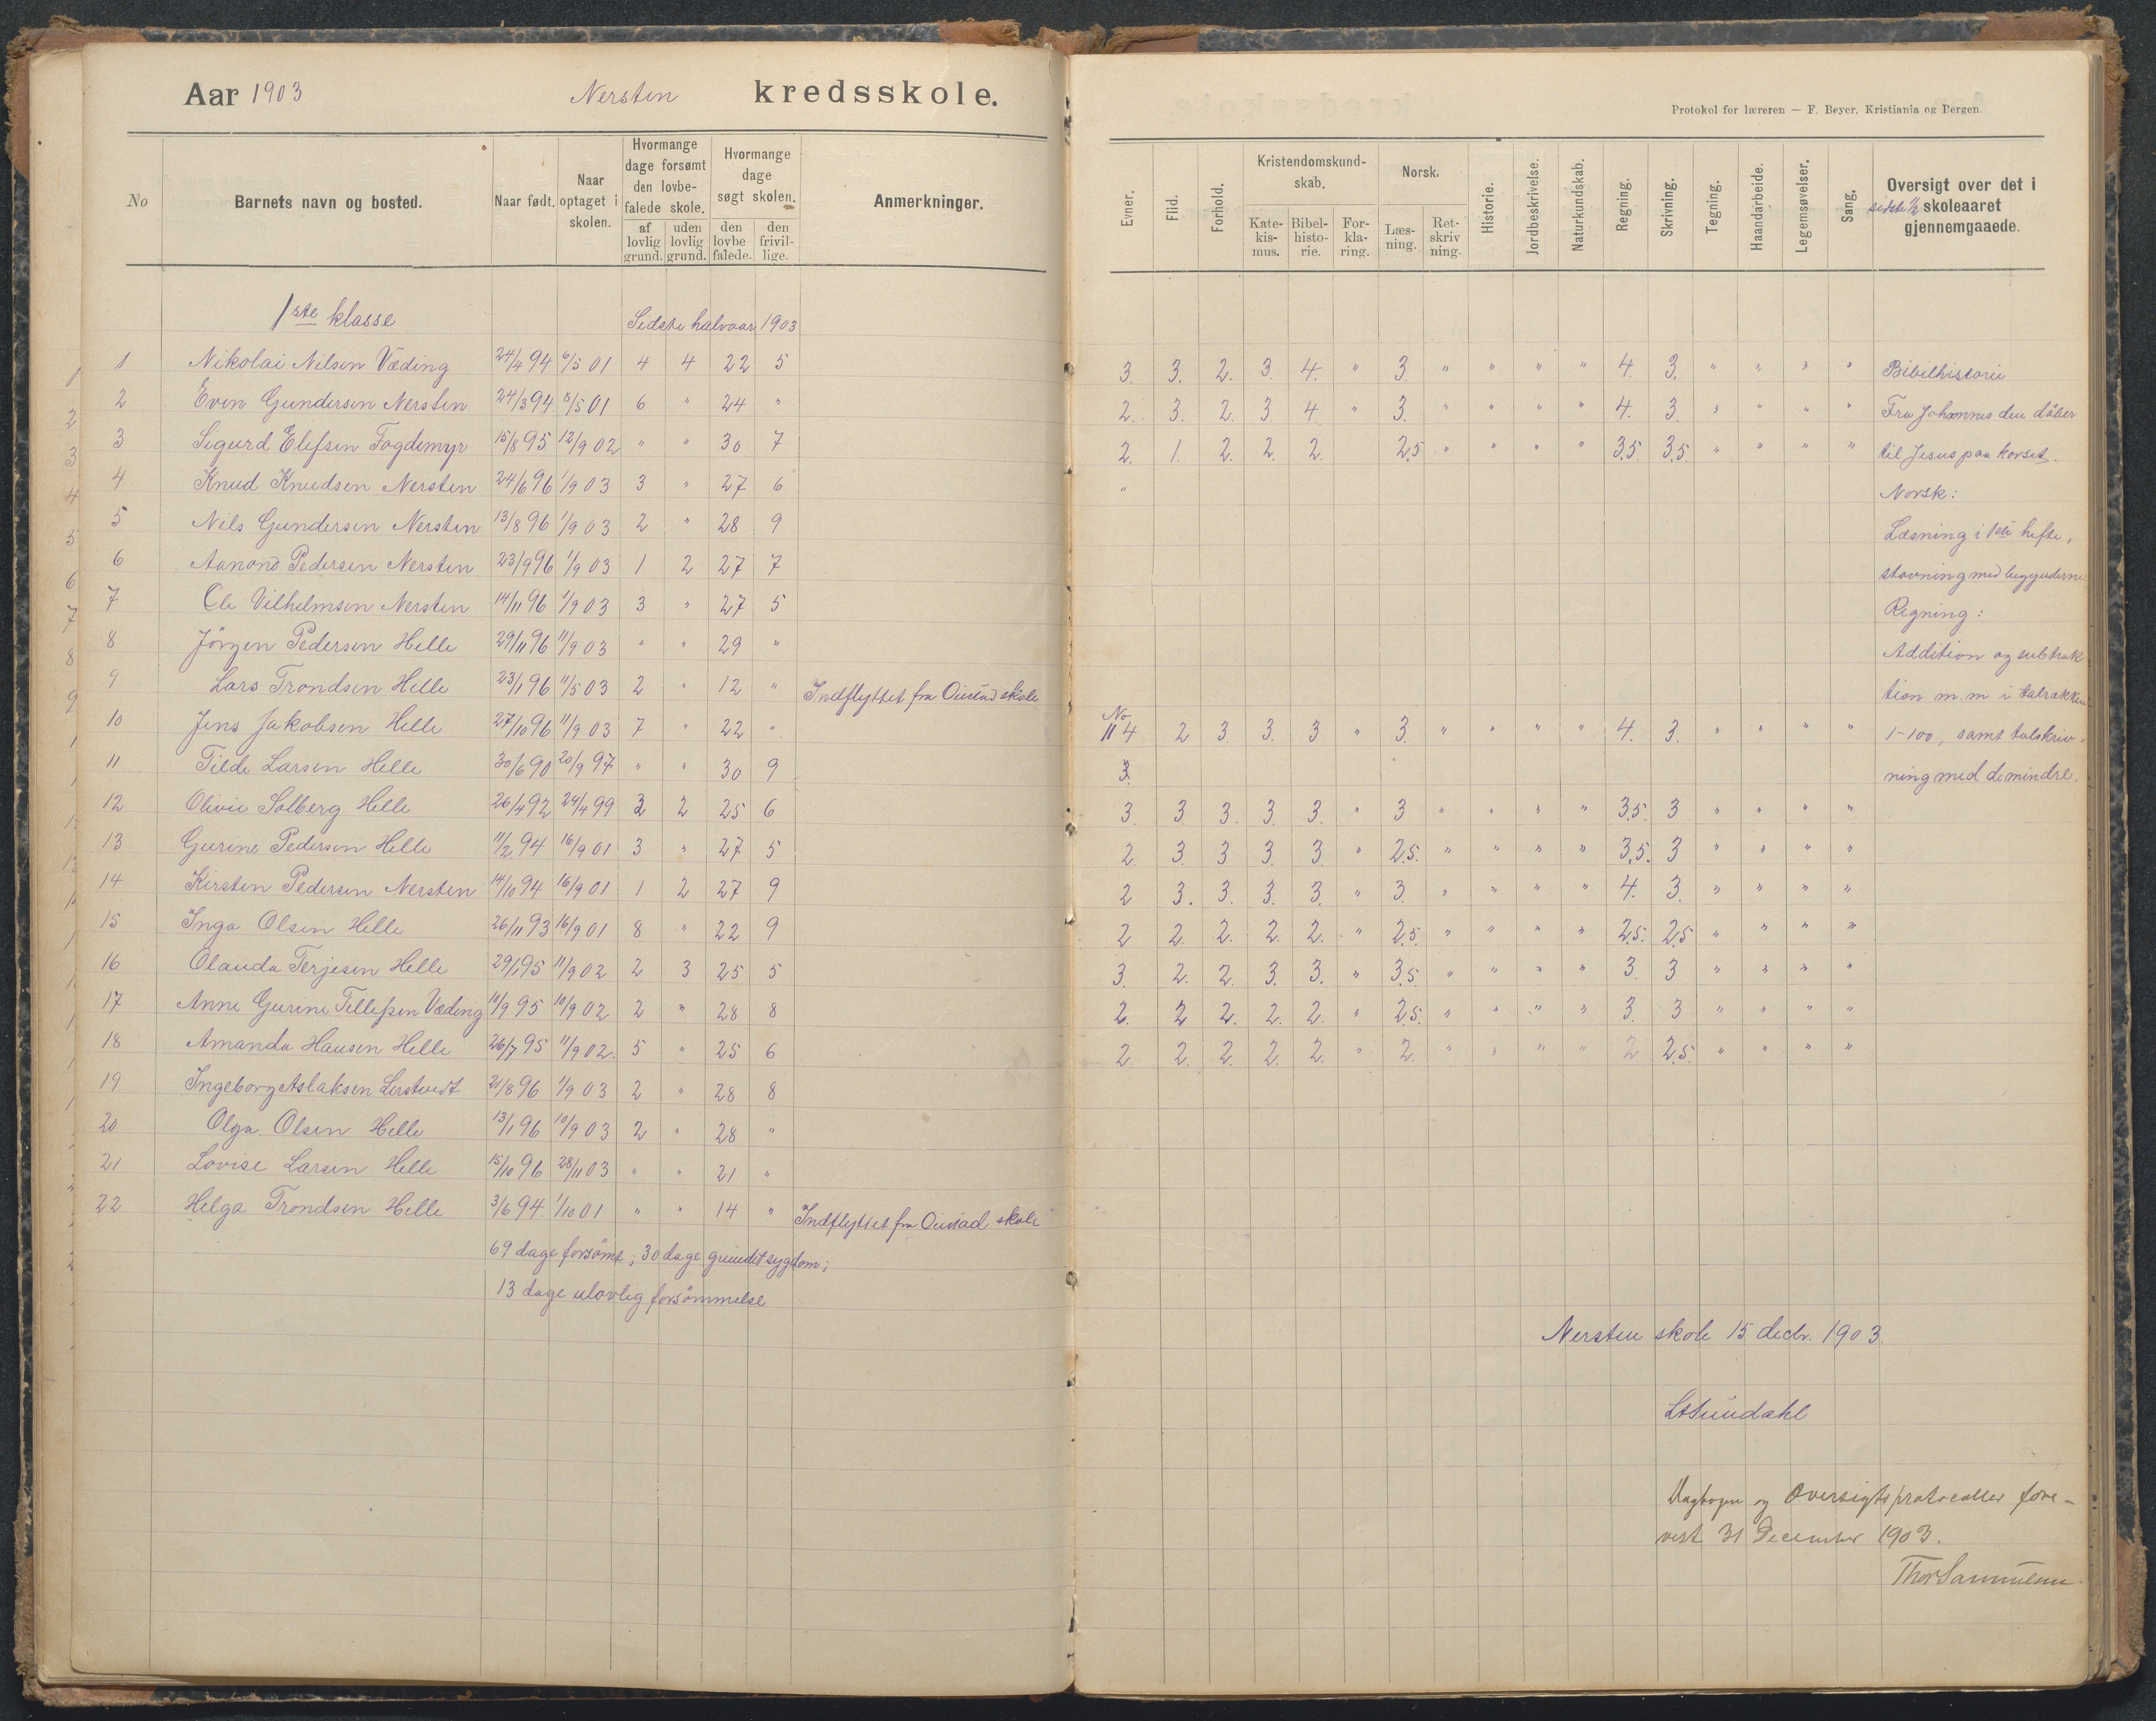 Aar 1903 Nersten kredsskole.
No Barnets navn og bosted. Naar født. Naar optaget i skolen. Hvormange dage forsømt den lovbefalede skole. af lovlig grund. uden lovlig grund. Hvormange dage søgt skolen. den lovbefalede. den frivillige. Anmerkninger.
1ste klasse Sidste halvaar 1903
1 Nikolai Nilsen Væding 24/4 94 6/5 01 4 4 22 5
2 Even Gundersen Nersten 24/3 94 8/5 01 6 " 24 "
3 Sigurd Elefsen Fogdemyr 15/8 95 12/9 02 " " 30 7
4 Knud Knudsen Nersten 24/6 96 1/9 03 3 " 27 6
5 Nils Gundersen Nersten 13/8 96 1/9 03 2 " 28 9
6 Aanond Pedersen Nersten 23/9 96 1/9 03 1 2 27 7
7 Ole Vilhelmsen Nersten 14/11 96 1/9 03 3 " 27 5
8 Jörgen Pedersen Helle 29/11 96 11/9 03 " " 29 "
9 Lars Trondsen Helle 23/1 96 11/5 03 2 " 12 " Indflyttet fra Oiestad skole
10 Jens Jakobsen Helle 27/10 96 11/9 03 7 " 22 "
11 Tilde Larsen Helle 30/6 90 20/9 97 " " 30 9
12 Olivie Solberg Helle 26/4 92 24/4 99 3 2 25 6
13 Gurine Pedersen Helle 11/2 94 16/9 01 3 " 27 5
14 Kirsten Pedersen Nersten 14/10 94 16/9 01 1 2 27 9
15 Inga Olsen Helle 26/11 93 16/9 01 8 " 22 9
16 Olauda Terjesen Helle 29/1 95 11/9 02 2 3 25 5
17 Anne Gurine Tellefsen Væding 11/9 95 10/9 02 2 " 28 8
18 Amanda Hansen Helle 26/7 95 11/9 02. 5 " 25 6
19 Ingeborg Aslaksen Lerstvedt 21/8 96 1/9 03 2 " 28 8
20 Olga Olsen Helle 13/1 96 10/9 03 2 " 28 "
21 Lovise Larsen Helle 15/10 96 28/11 03 " " 21 "
22 Helga Trondsen Helle 3/6 94 1/10 01 " " 14 " Indflyttet fra Oiestad skole
69 dage forsömt; 30 dage grundet sygdom;
13 dage ulovlig forsömmelse
Protokol for læreren — F. Beyer, Kristiania og Bergen.
Evner. Flid. Forhold. Kristendomskundskab. Katekismus. Bibelhistorie. Forklaring. Norsk. Læsning. Retskrivning. Historie. Jordbeskrivelse. Naturkundskab. Regning. Skrivning. Tegning. Haandarbeide. Legemsøvelser. Sang. Oversigt over det i sidste 1/2 skoleaaret gjennemgaaede.
3. 3. 2. 3. 4. " 3. " " " " 4. 3. " " " " Bibelhistorie
2. 3. 2. 3. 4 " 3. " " " " 4. 3. " " " " Fra Johannes den döber
2. 1. 2. 2. 2. 2,5 " " " " 3,5. 3,5. " " " " til Jesus paa korset.
" Norsk:
Læsning i 1ste hefte,
stavning med begynderne
Regning:
Addition og subtrak
tion m.m i talrækken
No 11 4 2 3. 3. 3 " 3. " " " " 4. 3. " " " " 1-100, samt talskriv-
3. ning med de mindre.
3. 3. 3. 3. 3. " 3 " " " " 3,5. 3 " " " "
2. 3. 3 3. 3. " 2,5. " " " " 3,5. 3 " " " "
2 3. 3. 3. 3. " 3. " " " " 4. 3. " " " "
2 2. 2. 2. 2. " 2,5. " " " " 2,5. 2,5 " " " "
3. 2. 2. 3. 3. " 3,5. " " " " 3. 3 " " " "
2. 2 2. 2. 2. " 2,5. " " " " 3. 3 " " " "
2. 2. 2. 2. 2. " 2. " " " " 2 2,5. " " " "
Nersten skole 15 decbr. 1903.
Dagbogen og Oversigtsprotocoller fore-
vist 31 December 1903.
Thor Samuelsen.